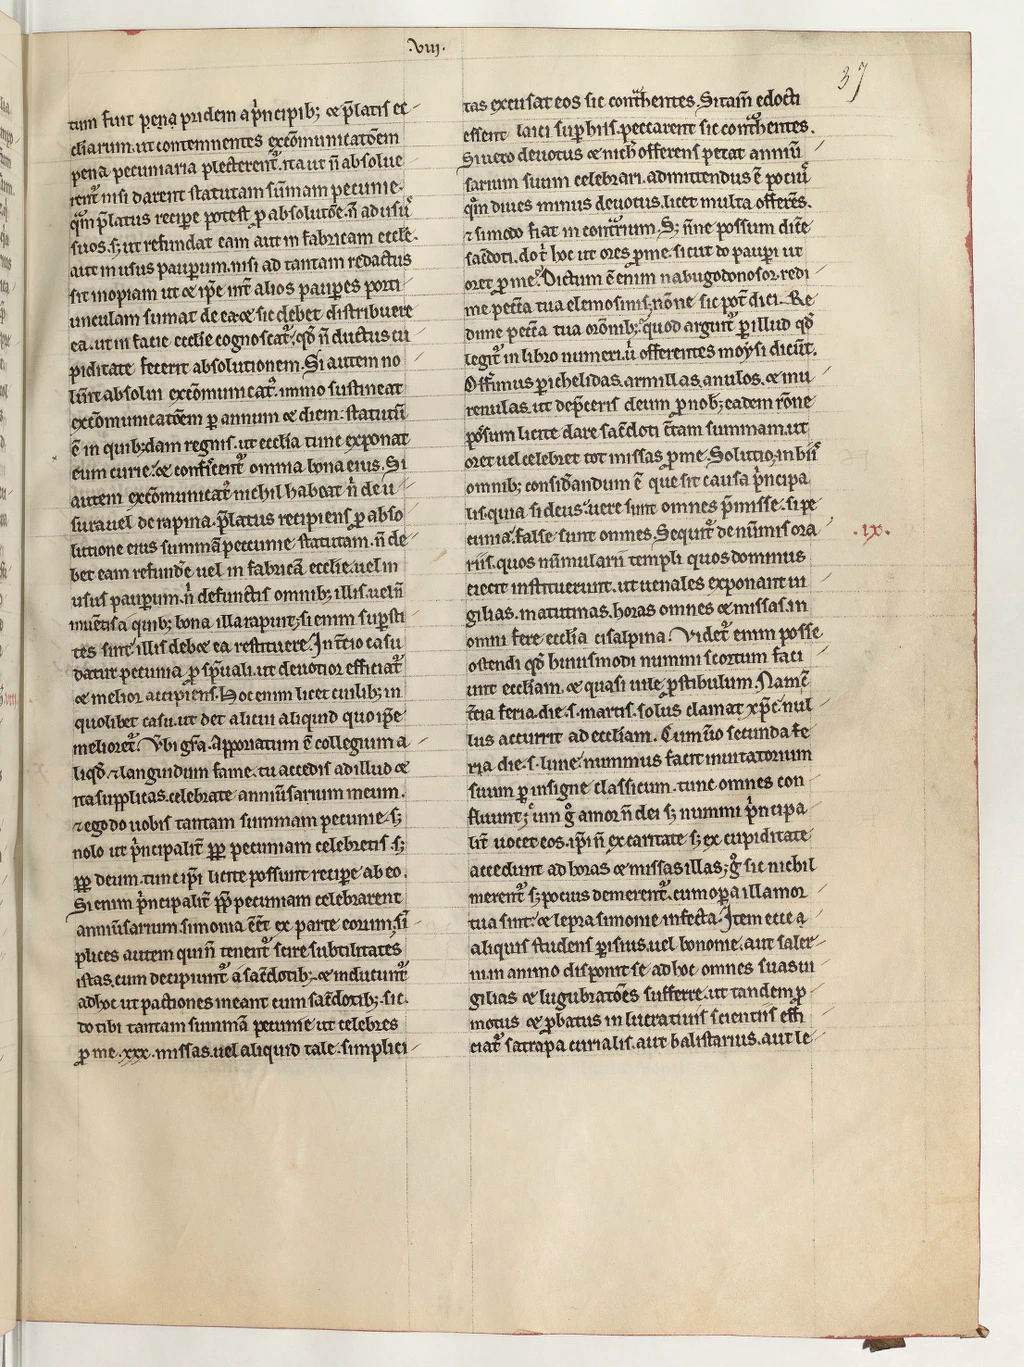 .VIII.
37
tum fuit pena pridem a p̾ncipib; ⁊ p̄latis ec
cliarum. ut contemnentes excōmunicatōem
pena pecuniaria plecterent᷑. ita ut ñ absolue
rent᷑ nisi darent statutam sūmam pecunie.
p̄latus recipe potest ꝑ absolutōe. ñ ad usꝰ
suos. s; ut refundat eam aut in fabricam eccłe.
aut in usus pauꝑum. nisi ad tantam redactus
sit inopiam ut ⁊ ip̄e int᷑ alios pauꝑes porti
unculam sumat de ea. ⁊ sic debet distribuere
ea. ut in facie ecclie cognoscat᷑. qđ ñ ductus cu
piditate fecerit absolutionem. Si autem no
lūit absolui excōmunicat᷑. immo sustineat
excōmunicatōem ꝑ annum ⁊ diem. statutū
ē in quib;dam regnis. ut ecclia tunc exponat
eum curie. ⁊ confiscent᷑ omnia bona eius. Si
autem excōmunicat᷑ nichil habeat ñ de u
sura uel de rapina. p̄latus recipiens ꝑ abso
lutione eius summā pecunie statutam. ñ de
bet eam refundē uel in fabricā ecclie. uel in
usus pauꝑum. ñ defunctis omnib; illis. uel ñ
inuētis a quib; bona illa rapuit; si enim suꝑsti
tes sint illis debet ea restituere. In t̄cio casu
datur pecunia ꝓ sp̄uali. ut deuotior efficiat᷑
⁊ melior accipiens. Hoc enim licet cuilib; in
quolibet casu. ut det alicui aliquid quo ip̄e
melioret᷑. Vbi gr̄a. Apporiatum ē collegium a
liqđ. ⁊ languidum fame. tu accedis ad illud ⁊
ita supplicas. celebrate anniūsarium meum.
⁊ ego do uobis tantam summam pecunie. s;
nolo ut p̾ncipalit᷑ ꝓp pecuniam celebretis. s;
ꝓp deum. tunc ip̄i licite possunt recipe ab eo.
Si enim p̾ncipalit᷑ ꝓp pecuniam celebrarent
anniūsarium. simonia eēt ex parte eorum. si
plices autem qui ñ tenent᷑ scire subtilitates
istas. cum decipiunt᷑ a sac̄dotib; ⁊ inducunt᷑
ad hoc ut pactiones ineant cum sac̄dotib;. sic.
do tibi tantam summā pecunie ut celebres
ꝓ me. xxx. missas. uel aliquid tale. simplici
tas excusat eos sic cont᷑hentes. Si tam̄ edocti
essent laici suꝑ hiis. peccarent sic cont᷑hentes.
Si uero deuotus ⁊ nich̄ offerens petat anniū
sarium suum celebrari. admittendus ē pociꝰ
qm̄ diues minus deuotus. licet multa offerēs.
⁊ si modo fiat in cont᷑rium. S; ñne possum dic̄e
sac̄doti. do t᷑ hoc ut ores ꝓ me. sicut do pauꝑi ut
oret ꝓ me. Dictum ē enim nabugodonosor. redi
me pecc̄a tua elemosinis; nōne sic pot᷑ dici. Re
dime pecc̄a tua orōnib;. quod arguit᷑ ꝑ illud qđ
legit᷑ in libro numeri. ū offerentes moysi dicūt.
Off̄imus ꝑichelidas. armillas. anulos. ⁊ mu
renulas. ut dep̄ceris deum ꝓ nob; eadem rōne
possum licite dare sac̄doti c̄tam summam. ut
oret uel celebret tot missas ꝓ me. Solutio. in hiis
omnib; considandum ē que sit causa p̾ncipa
lis. quia si deus. uere sunt omnes p̄misse. si pe
cunia. false sunt omnes. Sequit᷑ de nūmis ora
.IX.
riis. quos nūmularii templi quos dominus
eiecit instituerunt. ut uenales exponant ui
gilias. matutinas. horas omnes ⁊ missas. in
omni fere ecclia cisalpina. Videt᷑ enim posse
ostendi qđ huiusmodi nummi scortum faci
unt eccliam. ⁊ quasi uile ꝓstibulum. Nam ē
t̄cia feria. die. s. martis. solus clamat xp̄c. nul
lus accurrit ad eccliam. Cum ū̄o secunda fe
ria die. s. lune. nummus facit inuitatorium
suum ꝑ insigne classicum. tunc omnes con
fluunt; cum ḡ amor ñ dei s; nummi p̾ncipa
lit᷑ uocet eos. ip̄i ñ ex caritate s; ex cupiditate
accedunt ad horas ⁊ missas illas; ḡ sic nichil
merent᷑ s; pocius demerent᷑. cum oꝑa illa mor
tua sint. ⁊ lepra simonie infecta. Item ecce a
aliquis studens ꝑisius. uel bononie. aut saler
ni. in animo disponit se ad hoc omnes suas ui
gilias ⁊ lugubratōes sufferre. ut tandem ꝓ
motus ⁊ ꝓbatus in lucratiuis scientiis effi
ciat᷑ satrapa curialis. aut balistarius. aut le